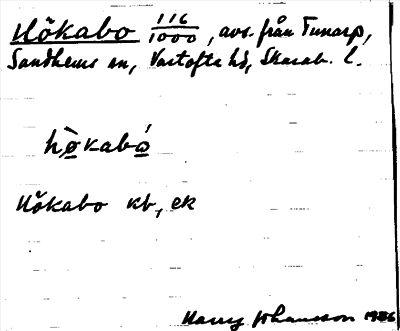 Hökabo 116/1000, avs. från Tunarp,
Sandhems sn, Vartofta hd, Skarab. l.
hø̀kabó̱
Hökabo kb, ek
Harry Johansson 1926